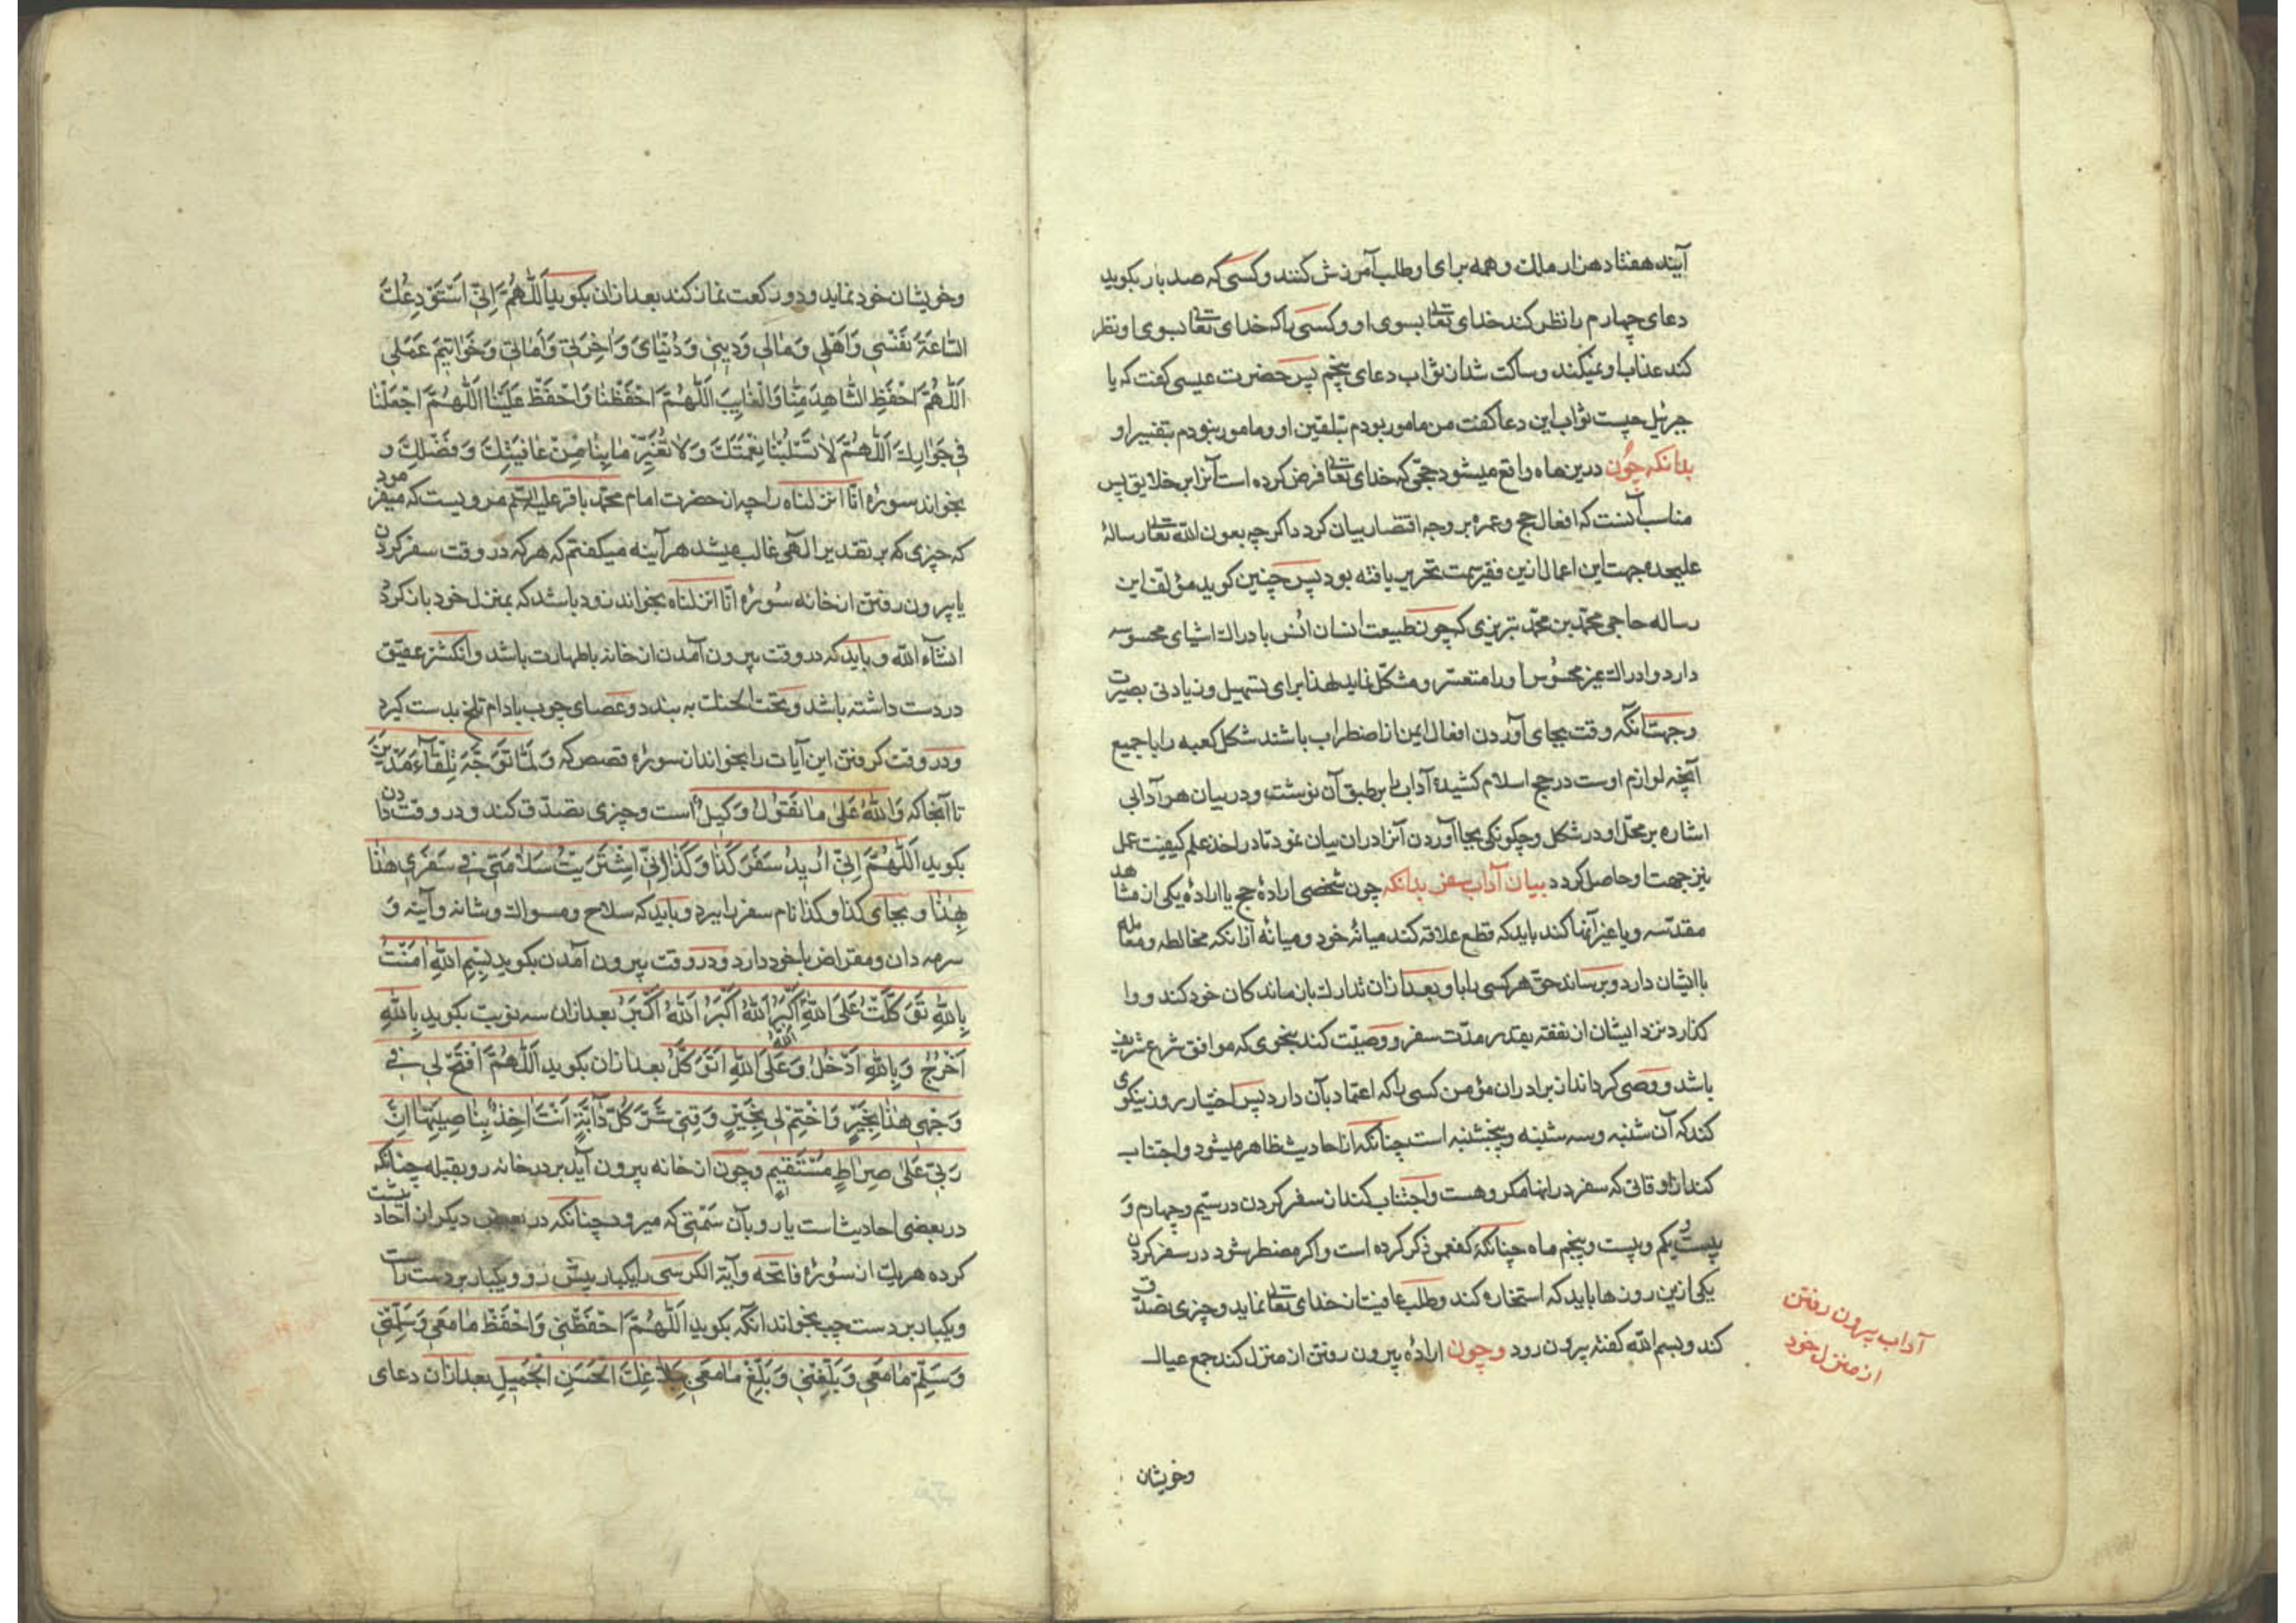 آیند هفتاد هزار ملك و همه برای او طلب آمرزش کنند و کسی که صد بار بکوید
دعای چهارم را نظر کند خدای تعالی بسوی او و کسی را که خدای تعالی بسوی او نظر
کند عذاب او نمیکند و ساکت شد از ثواب دعای پنجم پس حضرت عیسی کفت که یا
جبرئیل چیست ثواب این دعا کفت من مامور بودم بتلقین او و مامور نبودم بتفسیر او
بدانکه چون درین ماه واقع میشود حجی که خدای تعالی فرض کرده است آنرا بر خلایق پس
مناسب آنست که افعال حج و عمره بر وجه اقتصار بیان کردد اکرچه بعون الله تعالی رسالهٔ
علیحده جهت این اعمال ازین فقیر سمت تحریر یافته بود پس چنین کوید مؤلف این
رساله حاجی محمد بن محمد تبریزی که چون طبیعت انسان انس بادراك اشیای محسوسه
دارد و ادراك غیر محسوس او را متعسر و مشکل نماید لهذا برای تسهیل و زیادتی بصیرت
و جهت آنکه وقت بجای آوردن افعال ایمن از اضطراب باشند شکل کعبه را با جمیع
آنچه لوازم اوست در حج اسلام کشیده آداب را بر طبق آن نوشت و در بیان هر آدابی
اشاره بر محل او در شکل و چکونکی بجا آوردن آنرا در ان بیان نمود تا در اخذ علم کیفیت عمل
نیز جهت او حاصل کردد بیان آداب سفر بدانکه چون شخصی ارادهٔ حج یا ارادهٔ یکی از مشاهد
مقدسه و یا غیر آنها کند باید که قطع علاقه کند میانهٔ خود و میانهٔ آنانکه مخالطه و معامله
با ایشان دارد و برساند حق هر کسی را باو بعد از ان تدارك بازماندکان خود کند و وا
کذارد نزد ایشان از نفقه بقدر مدت سفر و وصیت کند بنحوی که موافق شرع شریف
باشد و وصی کرداند از برادران مؤمن کسی را که اعتماد بآن دارد پس اختیار روز نیکوی
کند که آن شنبه و سه شنبه و پنجشنبه است چنانکه از احادیث ظاهر میشود و اجتناب
کند از اوقاتی که سفر در انها مکروهست و اجتناب کند از سفر کردن در سیم و چهارم و
بیست و یکم و بیست و پنجم ماه چنانکه کفعمی ذکر کرده است و اکر مضطر شود در سفر کردن
یکی ازین روزها باید که استخاره کند و طلب عافیت از خدای تعالی نماید و چیزی تصدق
کند و بسم الله کفته بیرون رود و چون ارادهٔ بیرون رفتن از منزل کند جمع عیال
آداب بیرون رفتن
از منزل خود
وخویشان
وخویشان خود نماید و دو رکعت نماز کند بعد از ان بکوید اَللّٰهُمَّ اِنّی اَسْتَوْدِعُكَ
السّاعَةَ نَفْسی وَاَهْلی وَمالی وَدینی وَدُنْیایَ وَاٰخِرَتی وَاَمانَتی وَخَواتیمَ عَمَلی
اَللّٰهُمَّ احْفَظِ الشّاهِدَ مِنّا وَالْغایِبَ اَللّٰهُمَّ احْفَظْنا وَاحْفَظْ عَلَیْنا اَللّٰهُمَّ اجْعَلْنا
فی جَوارِكَ اَللّٰهُمَّ لا تَسْلُبْنا نِعْمَتَكَ وَلا تُغَیِّرْ ما بِنا مِنْ عافِیَتِكَ وَفَضْلِكَ و
بخواند سوره انّا انزلناه را چه از حضرت امام محمد باقر علیه السلم مرویست که میفرمود
که چیزی که بر تقدیر الهی غالب میشد هر آینه میکفتم که هر که در وقت سفر کردن
یا بیرون رفتن از خانه سُورهٔ انّا انزلناه بخواند زود باشد که بمنزل خود باز کردد
انشآء الله و باید که در وقت بیرون آمدن از خانه با طهارت باشد و انکشتر عقیق
در دست داشته باشد و تحت الحنك به بندد و عصای چوب بادام تلخ بدست کیرد
و در وقت کرفتن این آیات را بخواند از سورهٔ قصص که وَلَمّا تَوَجَّهَ تِلْقآءَ مَدْیَنَ
تا آنجا که وَاللّٰهُ عَلیٰ ما نَقُولُ وَکیلٌ است و چیزی تصدّق کند و در وقت دادن
بکوید اَللّٰهُمَّ اِنّی اُریدُ سَفَرَ کَذا وَکَذا اِنّی اشْتَرَیْتُ سَلامَتی فی سَفَری هٰذا
بِهٰذا و بجای کذا و کذا نام سفر را ببرد و باید که سلاح و مسواك و شانه و آینه و
سرمه دان و مقراض با خود دارد و در وقت بیرون آمدن بکوید بِسْمِ اللّٰهِ اٰمَنْتُ
بِاللّٰهِ تَوَکَّلْتُ عَلَی اللّٰهِ اَللّٰهُ اَکْبَرُ اَللّٰهُ اَکْبَرُ اَللّٰهُ اَکْبَرُ بعد از ان سه نوبت بکوید بِاللّٰهِ
اَخْرُجُ وَبِاللّٰهِ اَدْخُلُ وَعَلَی اللّٰهِ اَتَوَکَّلُ بعد از ان بکوید اَللّٰهُمَّ افْتَحْ لی فی
وَجْهی هٰذا بِخَیْرٍ وَاخْتِمْ لی بِخَیْرٍ وَقِنی شَرَّ کُلِّ دآبَّةٍ اَنْتَ اٰخِذٌ بِناصِیَتِها اِنَّ
رَبّی عَلیٰ صِراطٍ مُسْتَقیمٍ و چون از خانه بیرون آید بر در خانه رو بقبله چنانکه
در بعضی احادیث است یا رو بآن سَمْتی که میرود چنانکه در بعضی دیکر از احادیث است
کرده هر یك از سُورهٔ فاتحه و آیة الکرسی را یکبار پیش رو و یکبار بر دست راست
و یکبار بر دست چپ بخواند آنکه بکوید اَللّٰهُمَّ احْفَظْنی وَاحْفَظْ ما مَعی وَسَلِّمْنی
وَسَلِّمْ ما مَعی وَبَلِّغْنی وَبَلِّغْ ما مَعی بِبَلاغِكَ الْحَسَنِ الْجَمیلِ بعد از ان دعای